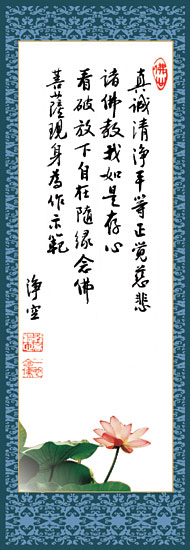 真诚清淨平等正覚慈悲
诸佛教我如是存心
看破放下自在随缘念佛
菩薩現身為作示範
淨空